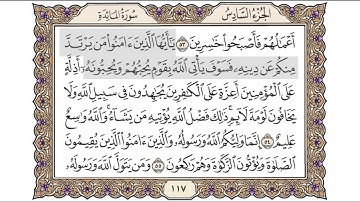 الجزء السادس
سورة المائدة
أَعْمَـٰلُهُمْ فَأَصْبَحُوا۟ خَـٰسِرِينَ ٥٣ يَـٰٓأَيُّهَا ٱلَّذِينَ ءَامَنُوا۟ مَن يَرْتَدَّ
مِنكُمْ عَن دِينِهِۦ فَسَوْفَ يَأْتِى ٱللَّهُ بِقَوْمٍ يُحِبُّهُمْ وَيُحِبُّونَهُۥٓ أَذِلَّةٍ
عَلَى ٱلْمُؤْمِنِينَ أَعِزَّةٍ عَلَى ٱلْكَـٰفِرِينَ يُجَـٰهِدُونَ فِى سَبِيلِ ٱللَّهِ وَلَا
يَخَافُونَ لَوْمَةَ لَآئِمٍ ۚ ذَٰلِكَ فَضْلُ ٱللَّهِ يُؤْتِيهِ مَن يَشَآءُ ۚ وَٱللَّهُ وَٰسِعٌ
عَلِيمٌ ٥٤ إِنَّمَا وَلِيُّكُمُ ٱللَّهُ وَرَسُولُهُۥ وَٱلَّذِينَ ءَامَنُوا۟ ٱلَّذِينَ يُقِيمُونَ
ٱلصَّلَوٰةَ وَيُؤْتُونَ ٱلزَّكَوٰةَ وَهُمْ رَٰكِعُونَ ٥٥ وَمَن يَتَوَلَّ ٱللَّهَ وَرَسُولَهُۥ
١١٧